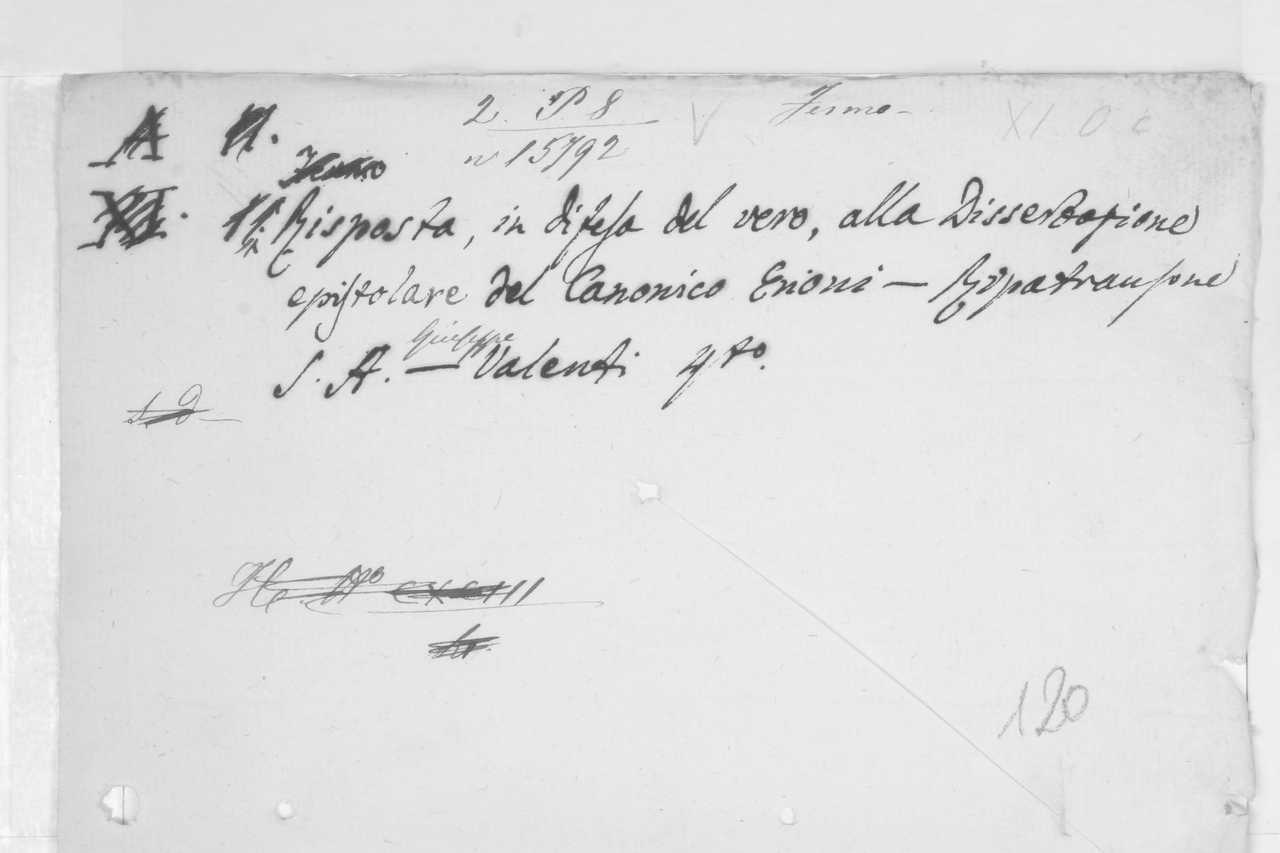 2. P 8 V Fermo - XI. O c
A 11.
n° 15792
XI. 11. Risposta, in difesa del vero, alla Dissertazione
epistolare del Canonico Erioni — Ripatransone
Giuseppe
S. A. — Valenti 4to.
H. No CXCIII
120